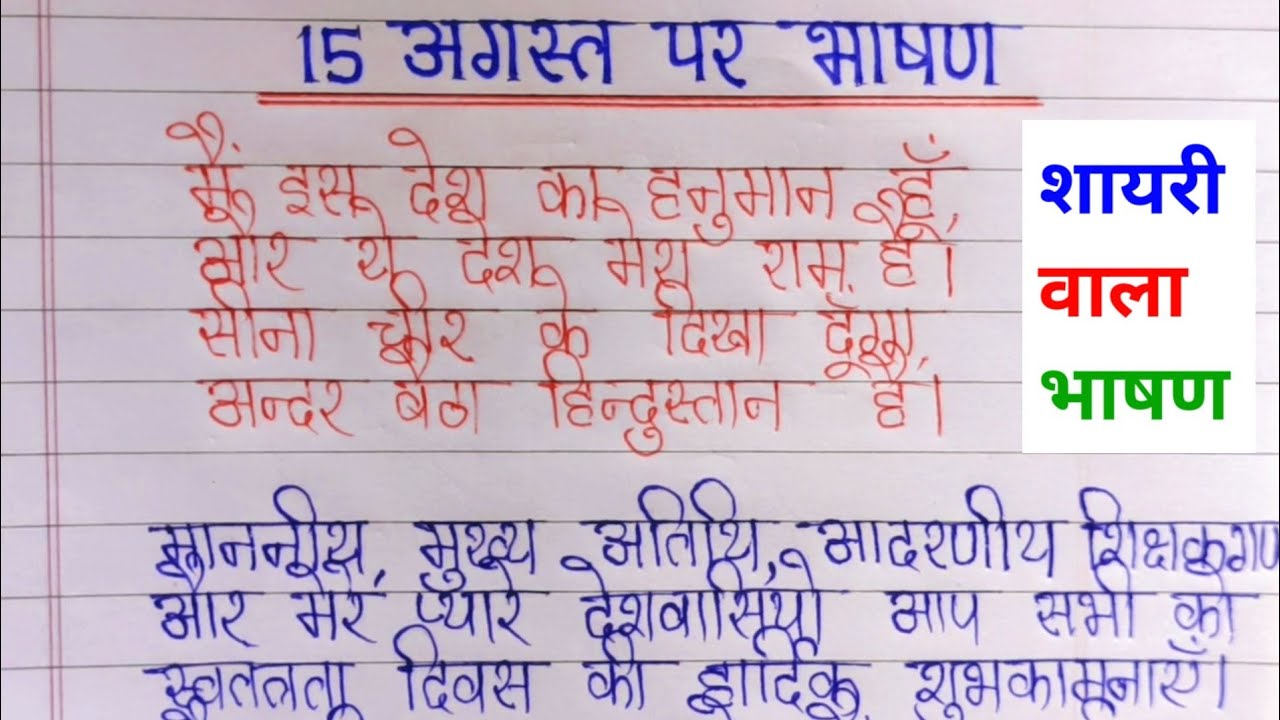 15 अगस्त पर भाषण
मैं इस देश का हनुमान हूँ,
और ये देश मेरा राम है।
सीना चीर के दिखा दूँगा,
अन्दर बैठा हिन्दुस्तान है।
शायरी
वाला
भाषण
माननीय, मुख्य अतिथि, आदरणीय शिक्षकगण
और मेरे प्यारे देशवासियो आप सभी को
स्वतंत्रता दिवस की हार्दिक शुभकामनाएँ।